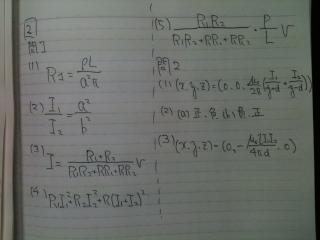 2
問1
(1) R₁ = ρL / a²π
(2) I₁/I₂ = a²/b²
(3) I = (R₁+R₂) / (R₁R₂+RR₁+RR₂) V
(4) R₁I₁²+R₂I₂²+R(I₁+I₂)²
(5) R₁R₂ / (R₁R₂+RR₁+RR₂) · ρ/L V
問2
(1) (x.y.z)=(0.0. μ₀/2π (I₁/y+d + I₂/y-d))
(2) (a) 正.負 (b) 負.正
(3) (x.y.z)=(0, -μ₀I₁I₂/4πd . 0)